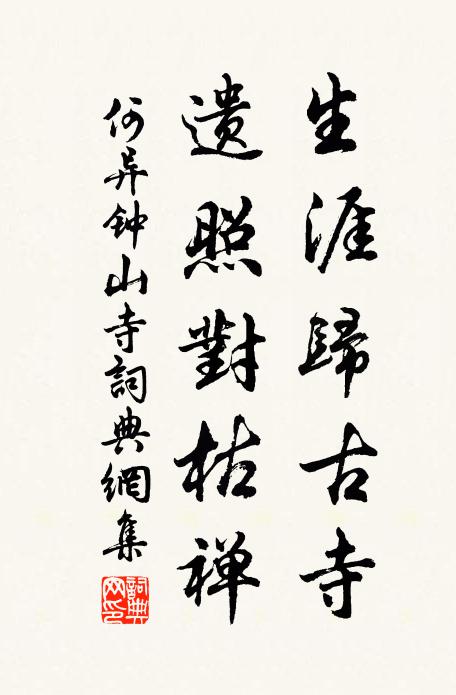 生涯歸古寺
遗照對枯禅
何异钟山寺詞典網集
詞典网印